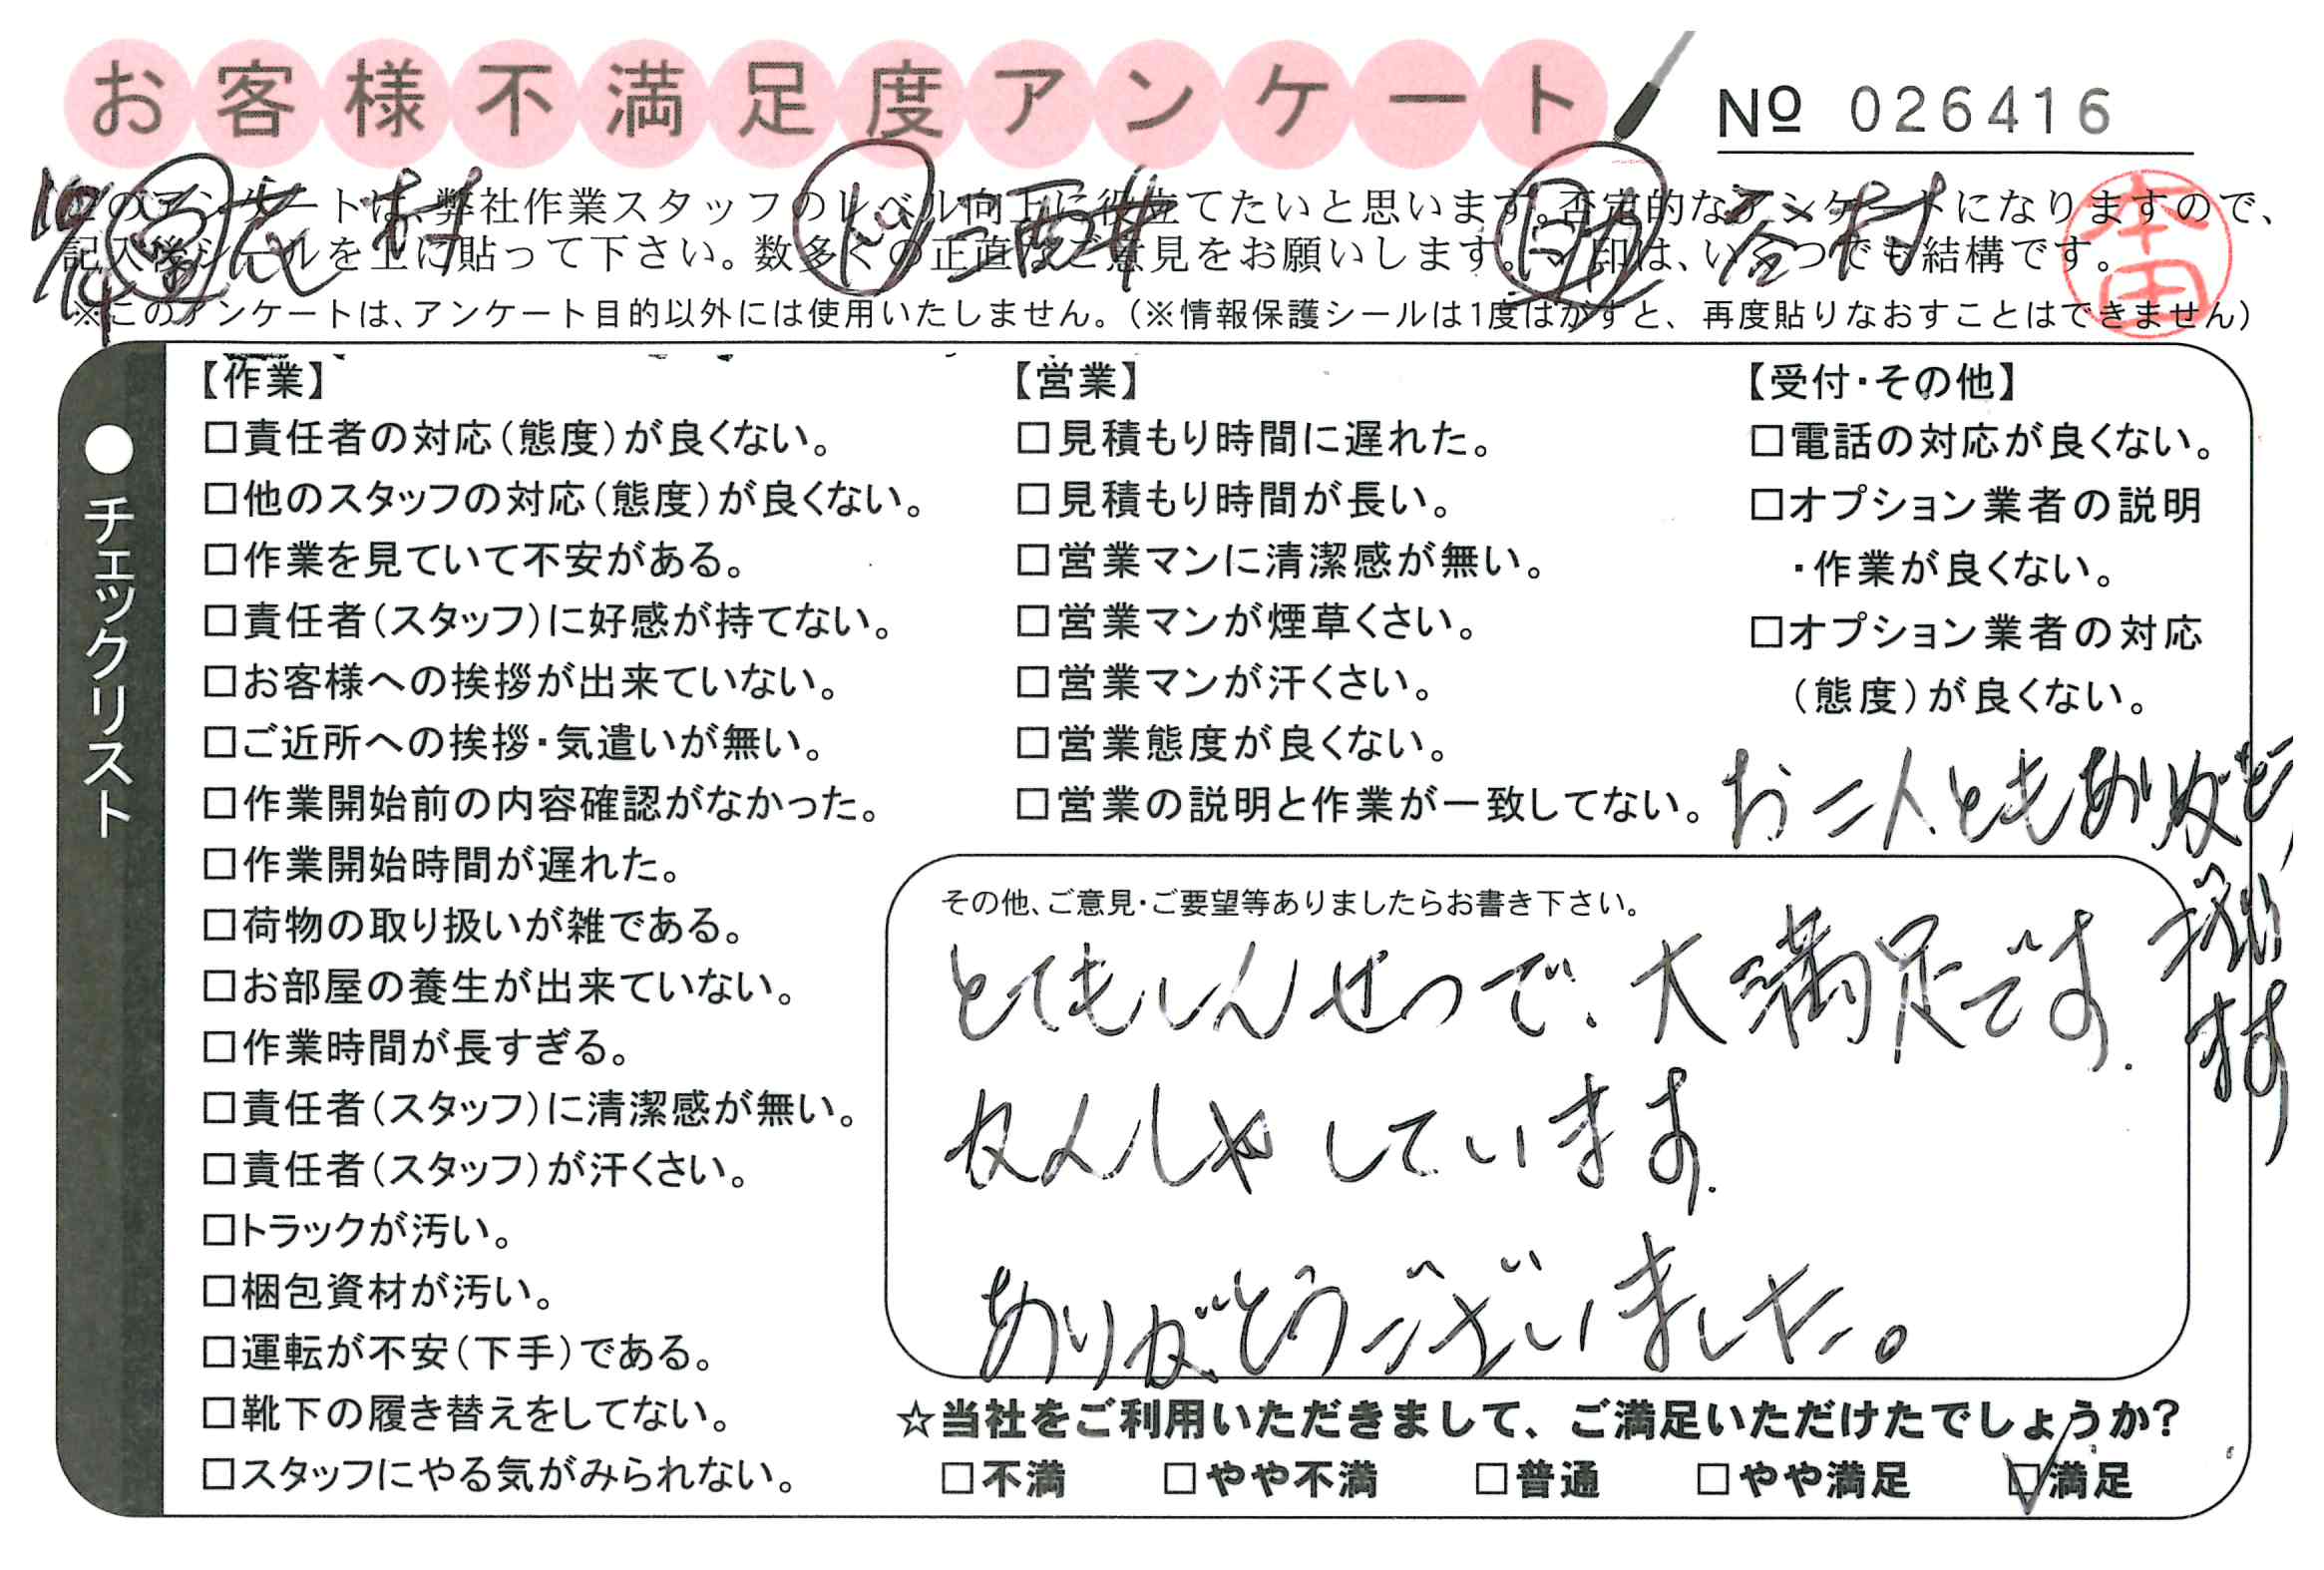 お客様不満足度アンケート
No 026416
村 酒井 助 谷村
本田
このアンケートは、弊社作業スタッフのレベル向上に役立てたいと思います。否定的なアンケートになりますので、
記入後シールを上に貼って下さい。数多くの正直なご意見をお願いします。✓印は、いくつでも結構です。
※このアンケートは、アンケート目的以外には使用いたしません。（※情報保護シールは1度はがすと、再度貼りなおすことはできません）
●チェックリスト
【作業】
□責任者の対応（態度）が良くない。
□他のスタッフの対応（態度）が良くない。
□作業を見ていて不安がある。
□責任者（スタッフ）に好感が持てない。
□お客様への挨拶が出来ていない。
□ご近所への挨拶・気遣いが無い。
□作業開始前の内容確認がなかった。
□作業開始時間が遅れた。
□荷物の取り扱いが雑である。
□お部屋の養生が出来ていない。
□作業時間が長すぎる。
□責任者（スタッフ）に清潔感が無い。
□責任者（スタッフ）が汗くさい。
□トラックが汚い。
□梱包資材が汚い。
□運転が不安（下手）である。
□靴下の履き替えをしてない。
□スタッフにやる気がみられない。
【営業】
□見積もり時間に遅れた。
□見積もり時間が長い。
□営業マンに清潔感が無い。
□営業マンが煙草くさい。
□営業マンが汗くさい。
□営業態度が良くない。
□営業の説明と作業が一致してない。
【受付・その他】
□電話の対応が良くない。
□オプション業者の説明
・作業が良くない。
□オプション業者の対応
（態度）が良くない。
お二人ともありがとう
ござい
ます
その他、ご意見・ご要望等ありましたらお書き下さい。
とてもしんせつで、大満足です.
かんしゃしています.
ありがとうございました。
☆当社をご利用いただきまして、ご満足いただけたでしょうか?
□不満 □やや不満 □普通 □やや満足 ☑満足